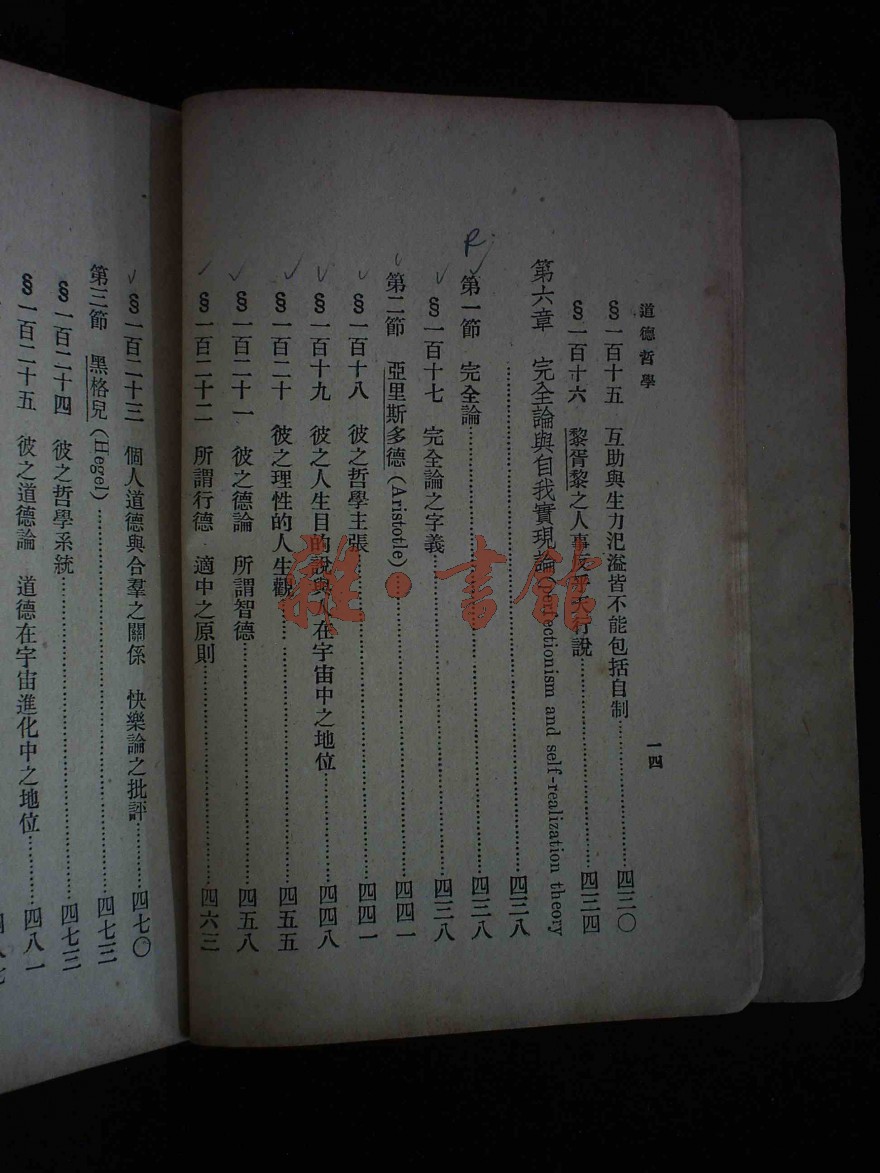 道德哲學
一四
§一百十五　互助與生力氾溢皆不能包括自制……四三〇
§一百十六　黎胥黎之人事　天行說……四三四
第六章　完全論與自我實現論(Perfectionism and self-realization theory
……四三八
第一節　完全論……四三八
§一百十七　完全論之字義……四三八
第二節　亞里斯多德(Aristotle)……四四一
§一百十八　彼之哲學主張……四四一
§一百十九　彼之人生目的說與人在宇宙中之地位……四四八
§一百二十　彼之理性的人生觀……四五五
§一百二十一　彼之德論　所謂智德……四五八
§一百二十二　所謂行德　適中之原則……四六三
§一百二十三　個人道德與合羣之關係　快樂論之批評……四七〇
第三節　黑格兒(Hegel)……四七三
§一百二十四　彼之哲學系統……四七三
§一百二十五　彼之道德論　道德在宇宙進化中之地位……四八一
R
雜·書館